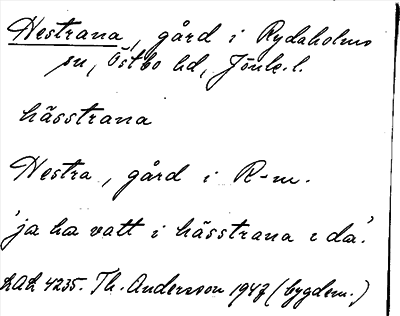 Hestrana, gård i Rydaholms
sn, Östbo hd, Jönk. l.
hässtrana
Hestra, gård i R-m.
'ja ha vatt i hässtrana i da'.
LAL 4235. Th. Andersson 1947 (bygdem.)